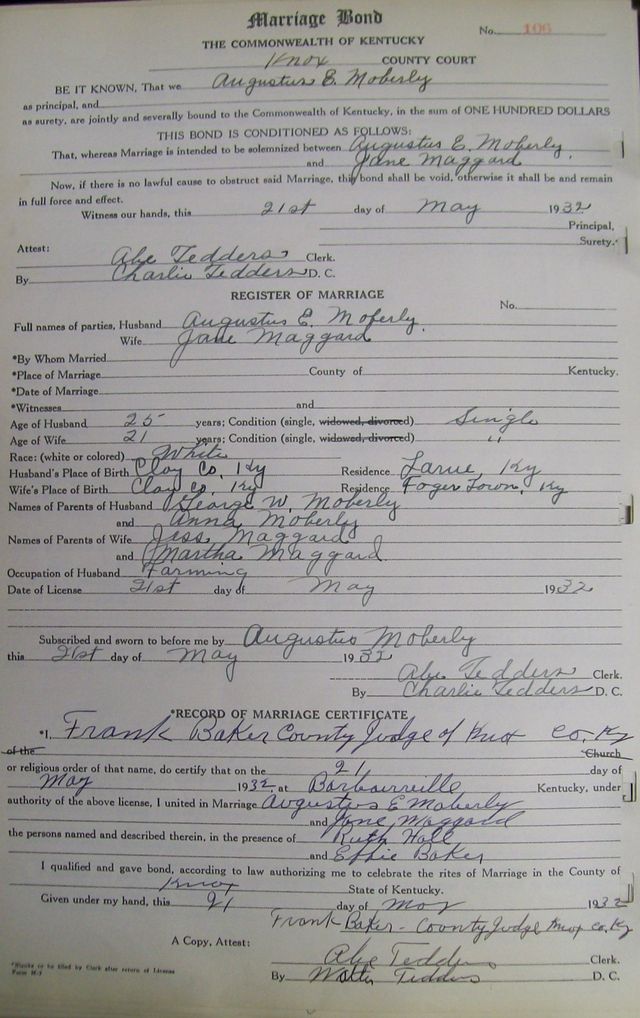 Marriage Bond
No. 106
THE COMMONWEALTH OF KENTUCKY
Knox COUNTY COURT
BE IT KNOWN, That we Augustus E. Moberly
as principal, and
as surety, are jointly and severally bound to the Commonwealth of Kentucky, in the sum of ONE HUNDRED DOLLARS
THIS BOND IS CONDITIONED AS FOLLOWS:
That, whereas Marriage is intended to be solemnized between Augustus E. Moberly,
and Jane Maggard
Now, if there is no lawful cause to obstruct said Marriage, this bond shall be void, otherwise it shall be and remain
in full force and effect.
Witness our hands, this 21st day of May 1932
Principal,
Surety.
Attest:
Abe Tedders Clerk.
By Charlie Tedders D. C.
REGISTER OF MARRIAGE
No.
Full names of parties, Husband Augustus E. Moberly,
Wife Jane Maggard
*By Whom Married
*Place of Marriage County of Kentucky.
*Date of Marriage
*Witnesses and
Age of Husband 25 years; Condition (single, widowed, divorced) Single
Age of Wife 21 years; Condition (single, widowed, divorced) "
Race: (white or colored) White
Husband's Place of Birth Clay Co, Ky Residence Larue, Ky
Wife's Place of Birth Clay Co, Ky Residence Foger Town, Ky
Names of Parents of Husband George W. Moberly
and Anna Moberly
Names of Parents of Wife Jess Maggard
and Martha Maggard
Occupation of Husband Farming
Date of License 21st day of May 1932
Subscribed and sworn to before me by Augustus Moberly
this 21st day of May 1932
Abe Tedders Clerk.
By Charlie Tedders D. C.
*RECORD OF MARRIAGE CERTIFICATE
*I, Frank Baker County Judge of Knox Co, Ky
of the Church
or religious order of that name, do certify that on the 21 day of
May 1932 at Barbourville Kentucky, under
authority of the above license, I united in Marriage Augustus E Moberly
and Jane Maggard
the persons named and described therein, in the presence of Ruth Hall
and Effie Baker
I qualified and gave bond, according to law authorizing me to celebrate the rites of Marriage in the County of
Knox State of Kentucky.
Given under my hand, this 21 day of May 1932
Frank Baker - County Judge Knox Co, Ky
A Copy, Attest:
Abe Tedders Clerk.
By Walter Tedders D. C.
*Blanks to be filled by Clerk after return of License